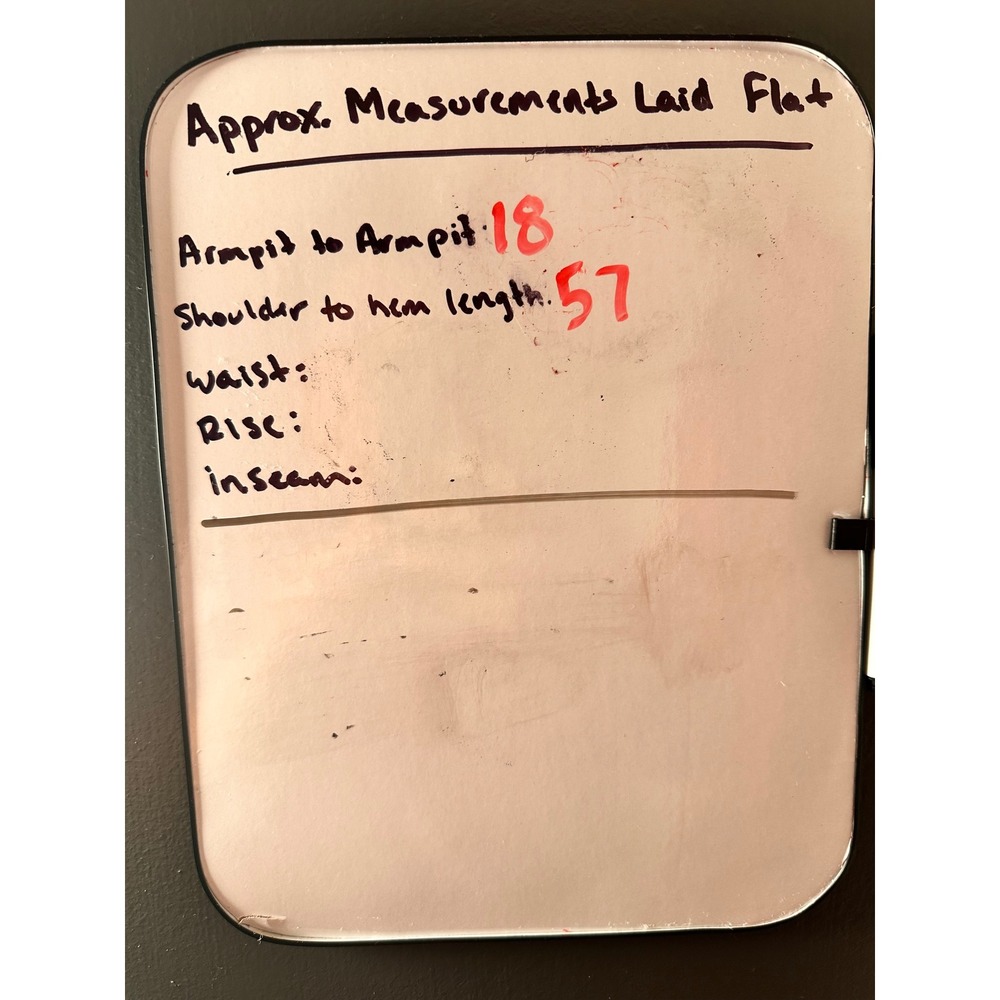 Approx. Measurements Laid Flat
Armpit to Armpit: 18
Shoulder to hem length: 57
Waist:
Rise:
inseam: